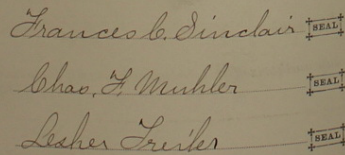 Frances C. Sinclair SEAL
Chas. F. Muhler SEAL
Lesher Treiler SEAL